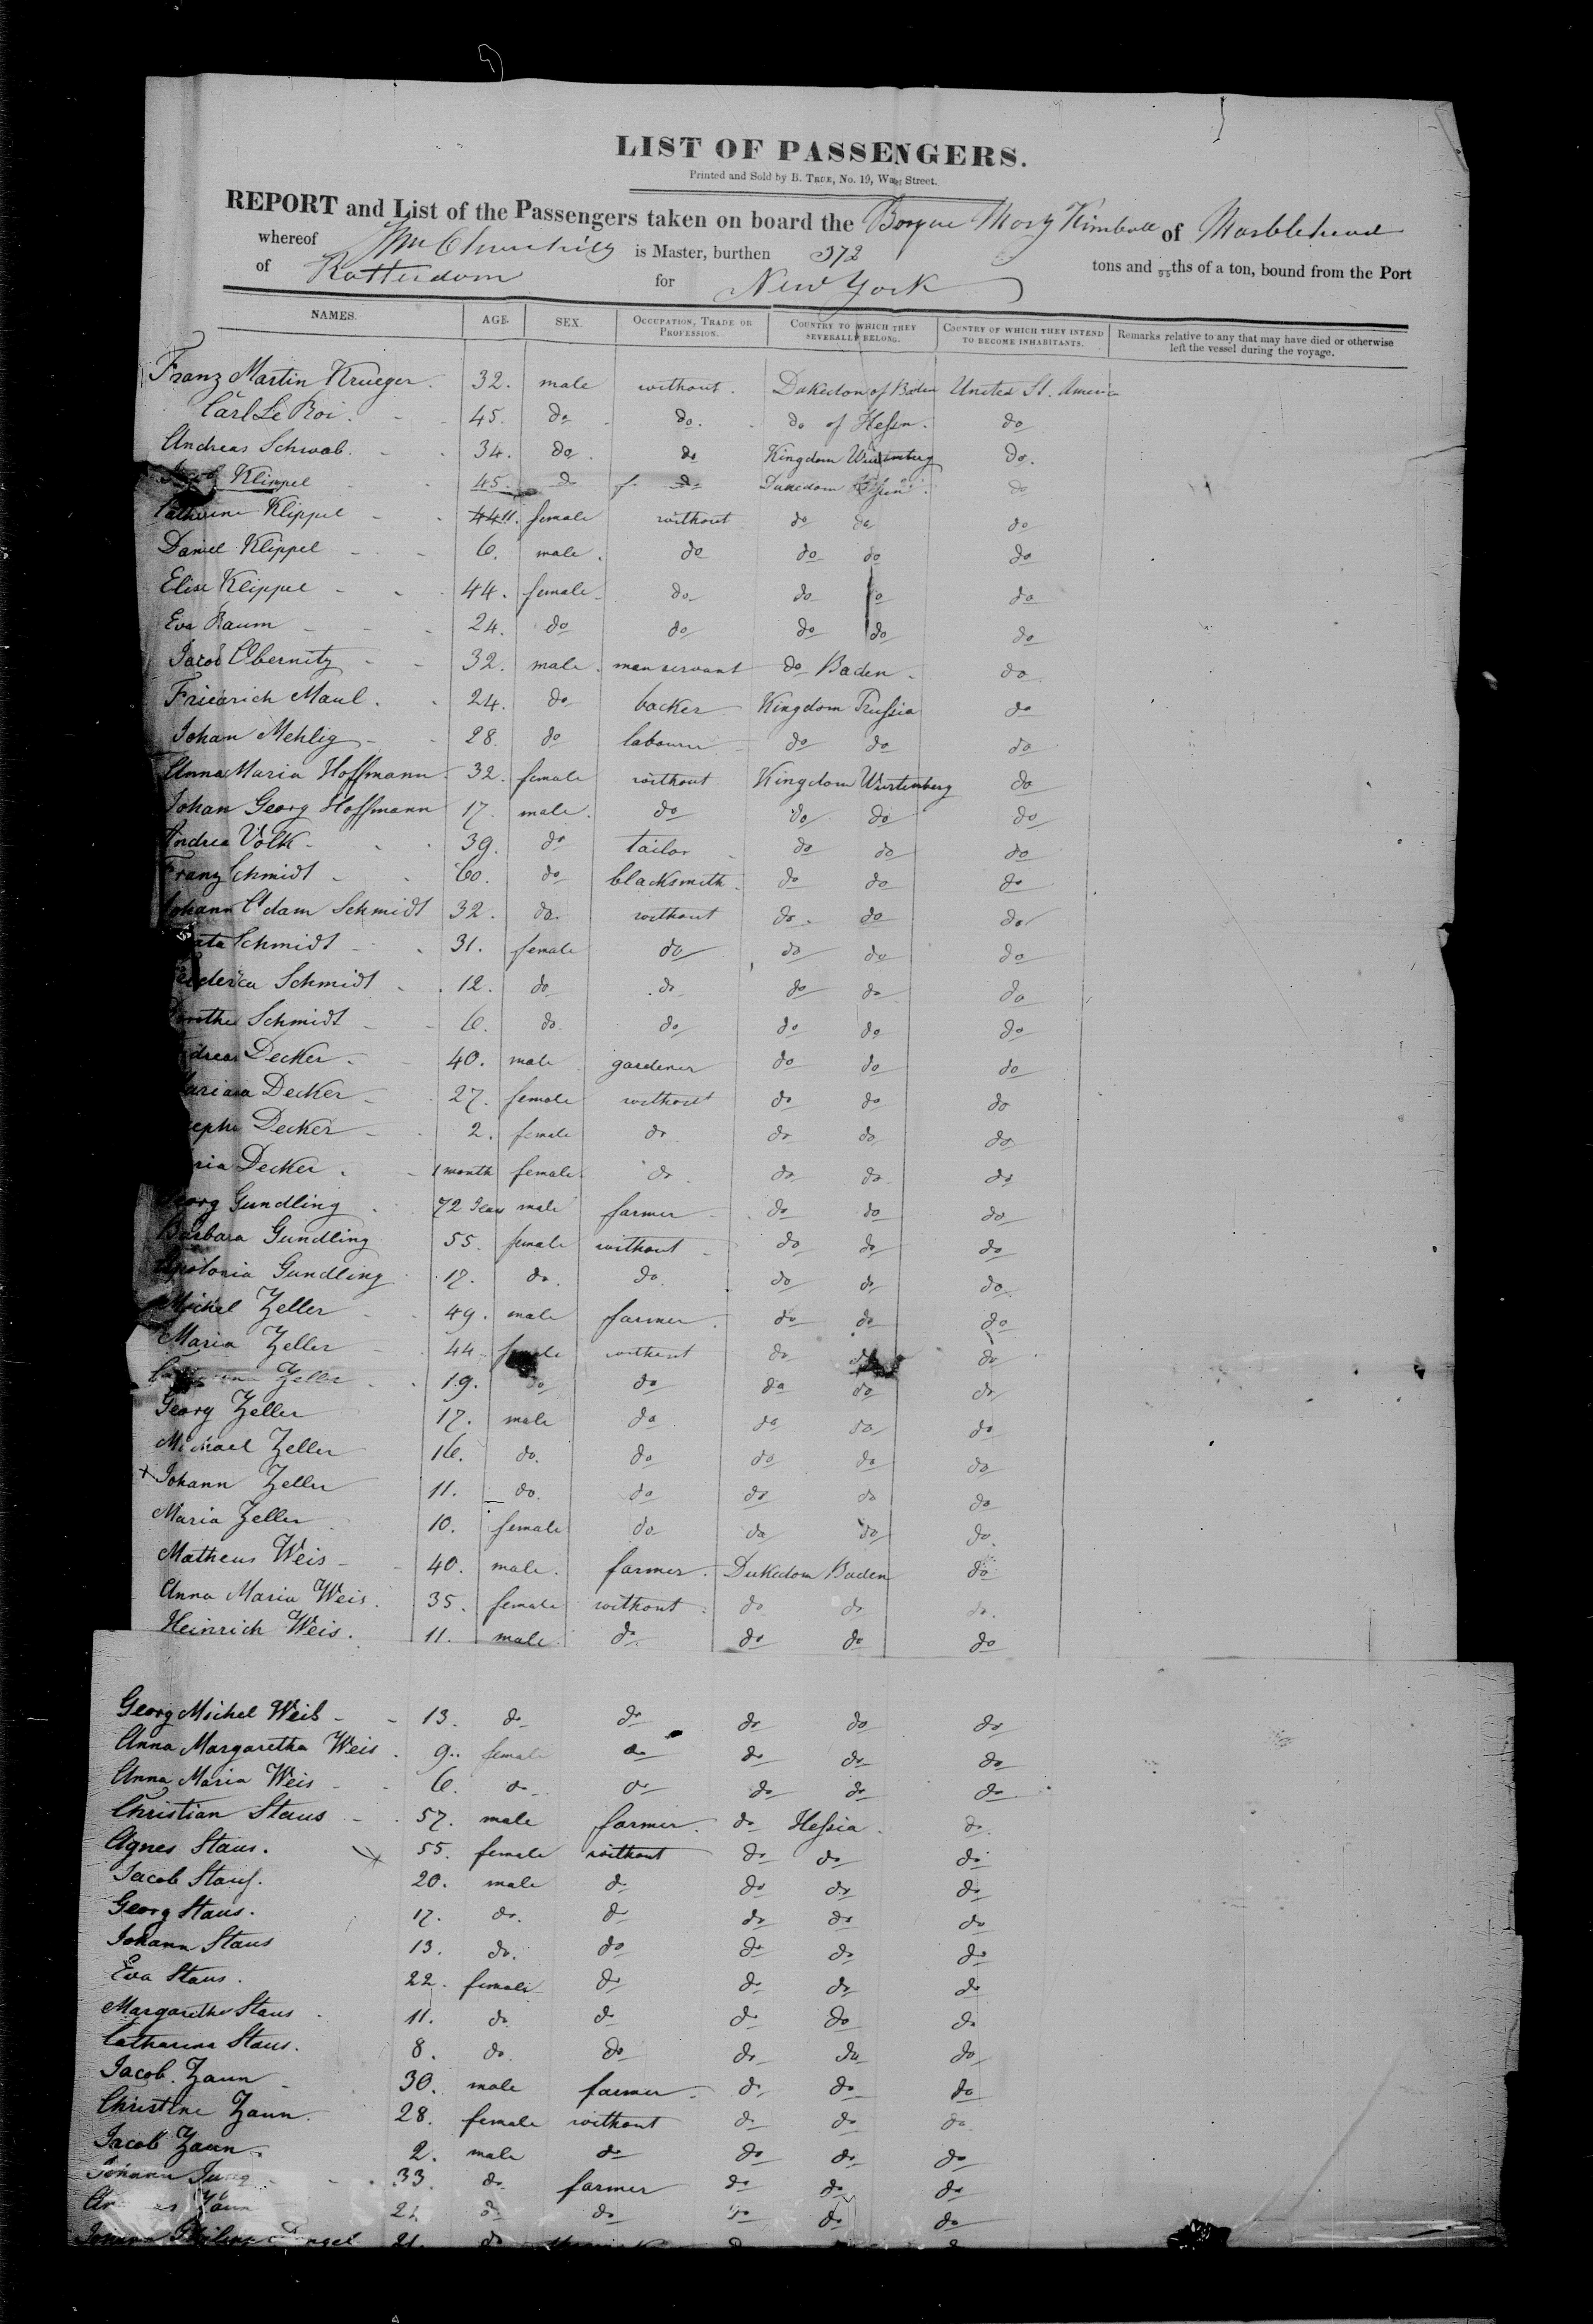 LIST OF PASSENGERS.
Printed and Sold by B. TRUE, No. 19, Water Street.
REPORT and List of the Passengers taken on board the Barque Mary Kimball of Marblehead
whereof Wm Churchill is Master, burthen 372 tons and 95ths of a ton, bound from the Port
of Rotterdam for New York
NAMES. AGE. SEX. OCCUPATION, TRADE OR PROFESSION. COUNTRY TO WHICH THEY SEVERALLY BELONG. COUNTRY OF WHICH THEY INTEND TO BECOME INHABITANTS. Remarks relative to any that may have died or otherwise left the vessel during the voyage.
Franz Martin Krueger. 32. male without. Dukedom of Baden United St. America
Carl Le Roi. 45. do do. do of Hessn. do
Andreas Schwab. 34. do. do Kingdom Wurtemberg do.
Jacob Klippel 45. do do Dukedom do
Catherine Klippel 11. female without do do do
Daniel Klippel 6. male. do do do do
Elise Klippel 44. female do do do do
Eva Raum 24. do do do do do
Jacob Obernitz 32. male. man servant do Baden. do
Friedrich Maul. 24. do backer Kingdom Prussia do
Johan Mehlig 28. do labourer do do do
Anna Maria Hoffmann 32. female without Kingdom Wurtemberg do
Johan Georg Hoffmann 17. male. do do do do
Andrea Volk 39. do tailor do do do
Franz Schmidt 60. do blacksmith. do do do
Johann Adam Schmidt 32. do. without do. do do
Schmidt 31. female do do do do
Schmidt 12. do do do do do
Schmidt 6. do. do do do do
Decker. 40. male gardener do do do
Decker 27. female without do do do
Decker 2. female do do do do
Decker. 1 month female do do do do
Georg Gundling 72 Years male farmer do do do
Barbara Gundling 55. female without do do do
Apolonia Gundling 17. do. do. do do do
Michel Zeller 49. male farmer. do do do
Maria Zeller 44 female without do do do
Zeller 19. do do do do do
Georg Zeller 17. male do do do do
Michael Zeller 16. do. do do do do
+ Johann Zeller 11. do. do do do do
Maria Zeller 10. female do do do do.
Matheus Weis 40. male. farmer. Dukedom Baden do
Anna Maria Weis. 35. female without. do do do.
Heinrich Weis. 11. male. do do do do
Georg Michel Weis 13. do do do do do
Anna Margaretha Weis. 9. female do do do do
Anna Maria Weis 6. do do do do do
Christian Staus 57. male farmer. do Hessia. do.
Agnes Staus. 55. female without do do do
Jacob Staus. 20. male do do do do
Georg Staus. 17. do. do do do do
Johann Staus 13. do. do do do do
Eva Staus. 22. female do do do do
Margaretha Staus 11. do do do do do
Catharina Staus. 8. do. do do do do
Jacob Zaun 30. male farmer. do do do
Christine Zaun. 28. female without do do do
Jacob Zaun. 2. male do do do do
Johann 33. do. farmer do do do
Zaun do do do do do
Johann 21. do do do